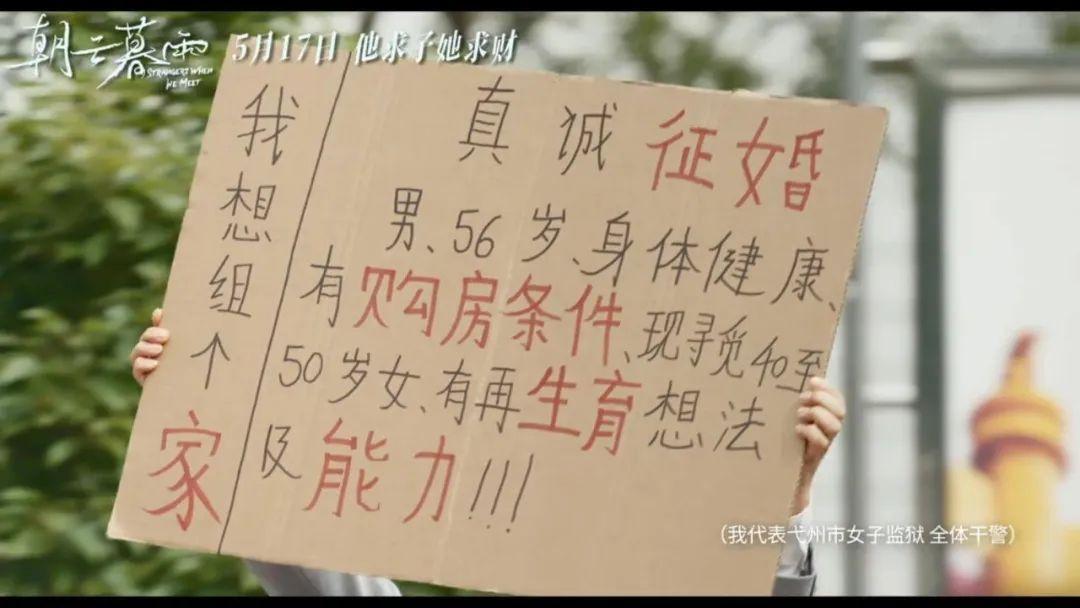 朝云暮雨
STRANGERS WHEN
WE MEET
5月17日 他求子她求财
我想组个家
真诚征婚
男、56岁、身体健康、
有购房条件、现寻觅40至
50岁女、有再生育想法
及能力!!!
(我代表弋州市女子监狱 全体干警)